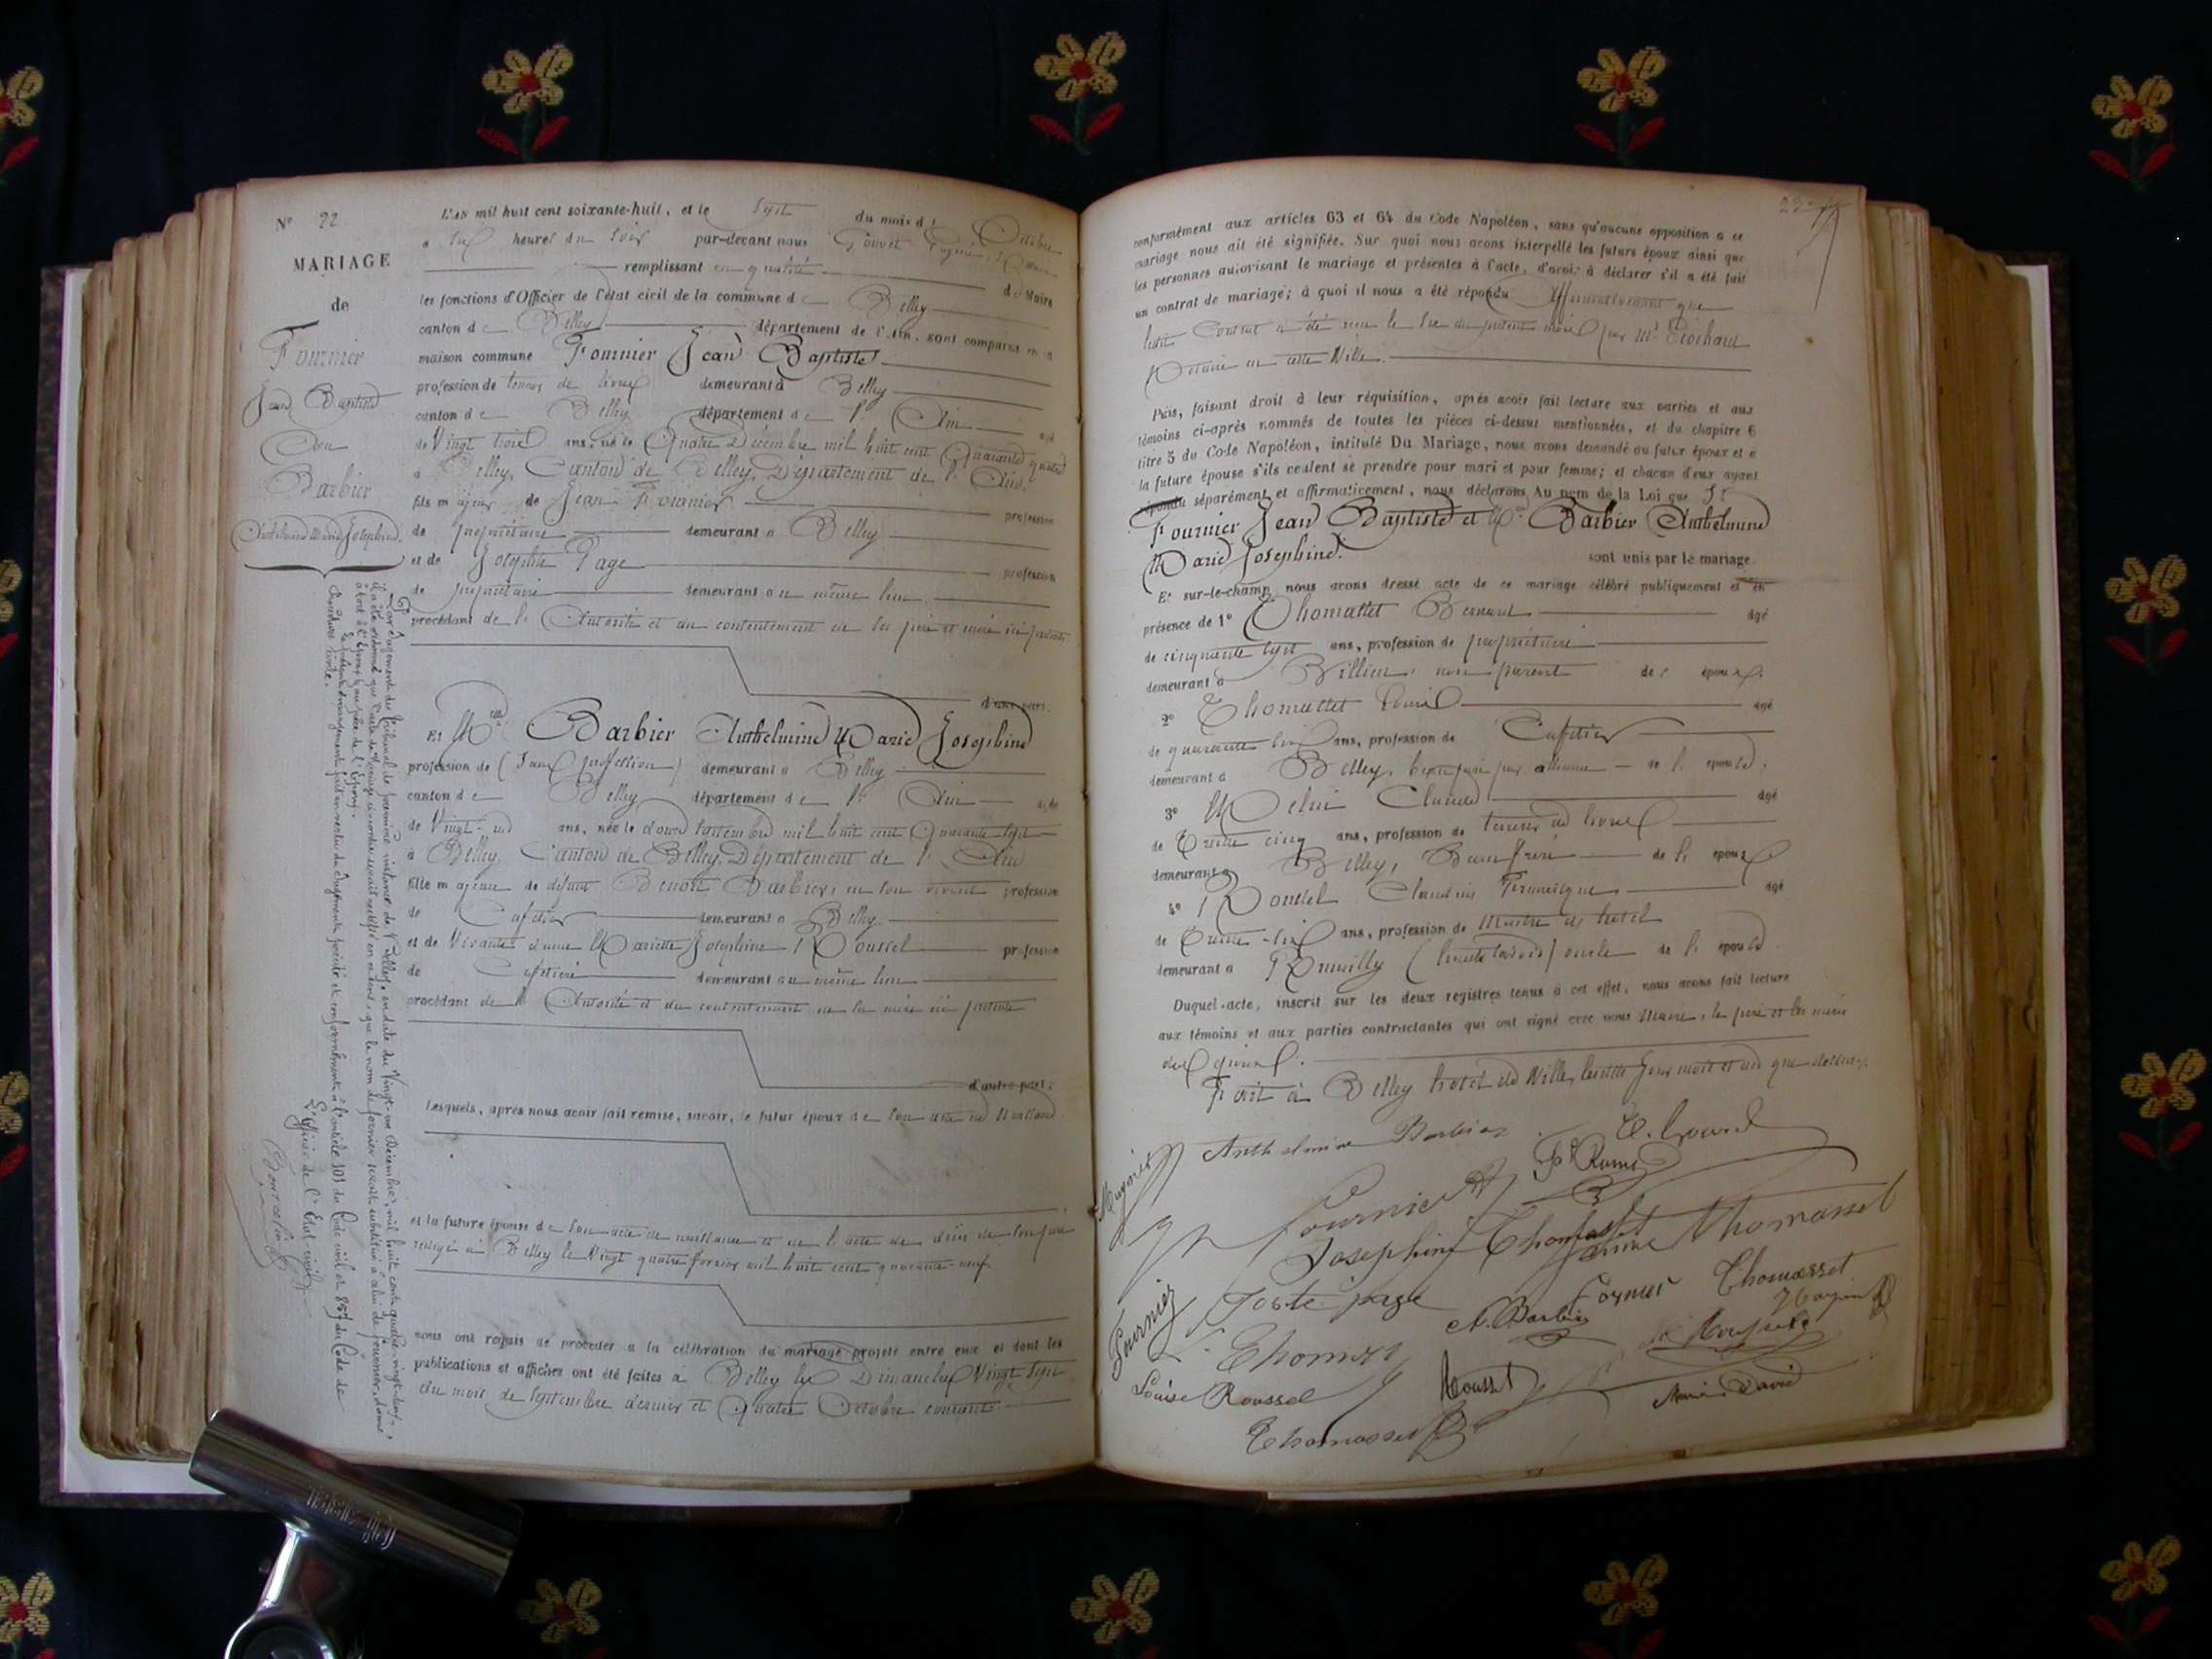 N° 22
MARIAGE
de
Fournier
Jean Baptiste
Barbier
Anthelmine Marie Joséphine
L'AN mil huit cent soixante-huit, et le sept du mois d' Octobre
a six heures du soir par-devant nous
remplissant en qualité de Maire
les fonctions d'Officier de l'état civil de la commune de Belley
canton de Belley département de l'Ain, sont comparus en la
maison commune Fournier Jean Baptiste
profession de teneur de livres demeurant à Belley
canton de Belley département de l' Ain agé
de Vingt trois ans, né le Quatre Décembre mil huit cent Quarante quatre
a Belley, Canton de Belley, Département de l' Ain.
fils majeur de Jean Fournier profession
de propriétaire demeurant a Belley
et de Josephte Page profession
de propriétaire demeurant au même lieu
procédant de l' Autorité et du consentement de ses père et mère ici présents
d'une part.
Et Melle Barbier Anthelmine Marie Joséphine
profession de (sans profession) demeurant a Belley
canton de Belley département de l' Ain agée
de Vingt-un ans, née le douze Septembre mil huit cent Quarante sept
a Belley, Canton de Belley, Département de l' Ain
fille majeure de défunt Benoit Barbier, en son vivant profession
de Cafetier demeurant a Belley
et de Vivante dame Mariette Joséphine Roussel profession
de Cafetière demeurant au même lieu
procédant de l' Autorité et du consentement de sa mère ici présente
d'autre part;
Lesquels, après nous avoir fait remise, savoir, le futur époux de son acte de Naissance
et la future épouse de son acte de naissance et de l'acte de décès de son père
rédigé à Belley le Vingt quatre février mil huit cent quarante-neuf
nous ont requis de procéder a la célébration du mariage projeté entre eux et dont les
publications et affiches ont été faites à Belley les Dimanches Vingt sept
du mois de Septembre dernier et Quatre Octobre courant
Par Jugement du Tribunal de première instance de Belley, en date du Vingt-un Décembre mil huit cent quatre-vingt-
il a été ordonné que l'acte de Mariage ci-contre serait rectifié en ce sens, que le nom de fornier serait substitué à celui de fournier, donné
à tort à l'époux et au père de l'Epoux.
Le présent émargement fait en vertu du Jugement précité et conformément à l'article 101 du Code civil et 857 du Code de
Procédure civile.
L'Officier de l'État civil
conformément aux articles 63 et 64 du Code Napoléon, sans qu'aucune opposition a ce
mariage nous ait été signifiée. Sur quoi nous avons interpellé les futurs époux ainsi que
les personnes autorisant le mariage et présentes à l'acte, d'avoir à déclarer s'il a été fait
un contrat de mariage; à quoi il nous a été répondu affirmativement que
ledit Contrat a été reçu le six du présent mois par Me
Notaire en cette Ville.
Puis, faisant droit à leur réquisition, après avoir fait lecture aux parties et aux
témoins ci-après nommés de toutes les pièces ci-dessus mentionnées, et du chapitre 6
titre 5 du Code Napoléon, intitulé Du Mariage, nous avons demandé au futur époux et a
la future épouse s'ils veulent se prendre pour mari et pour femme; et chacun d'eux ayant
répondu séparément et affirmativement, nous déclarons Au nom de la Loi que Sr
Fournier Jean Baptiste et Melle Barbier Anthelmine
Marie Joséphine. sont unis par le mariage.
Et sur-le-champ nous avons dressé acte de ce mariage célébré publiquement et en
présence de 1° Thomasset Bernard agé
de cinquante sept ans, profession de propriétaire
demeurant à Billieu, non parent des époux.
2° Thomasset Louis agé
de quarante six ans, profession de Cafetier
demeurant a Belley, beau père par alliance de l' épouse.
3° Claude agé
de Trente cinq ans, profession de teneur de livres
demeurant a Belley, Beau frère de l' époux
4° Roussel Claudius agé
de Trente-six ans, profession de Maître d'hôtel
demeurant a Rumilly (haute Savoie) oncle de l' épouse
Duquel acte, inscrit sur les deux registres tenus à cet effet, nous avons fait lecture
aux témoins et aux parties contractantes qui ont signé avec nous Maire, le père et les mères
des époux.
Fait à Belley hôtel de Ville, lesdits Jour mois et an que dessus.
Anthelmine Barbier
Fournier
Josephine Thomasset
Jeanne Thomasset
Joste page
A. Barbier
Thomasset
Fournier
Louise Roussel
Rousset
Marie David
Thomasset